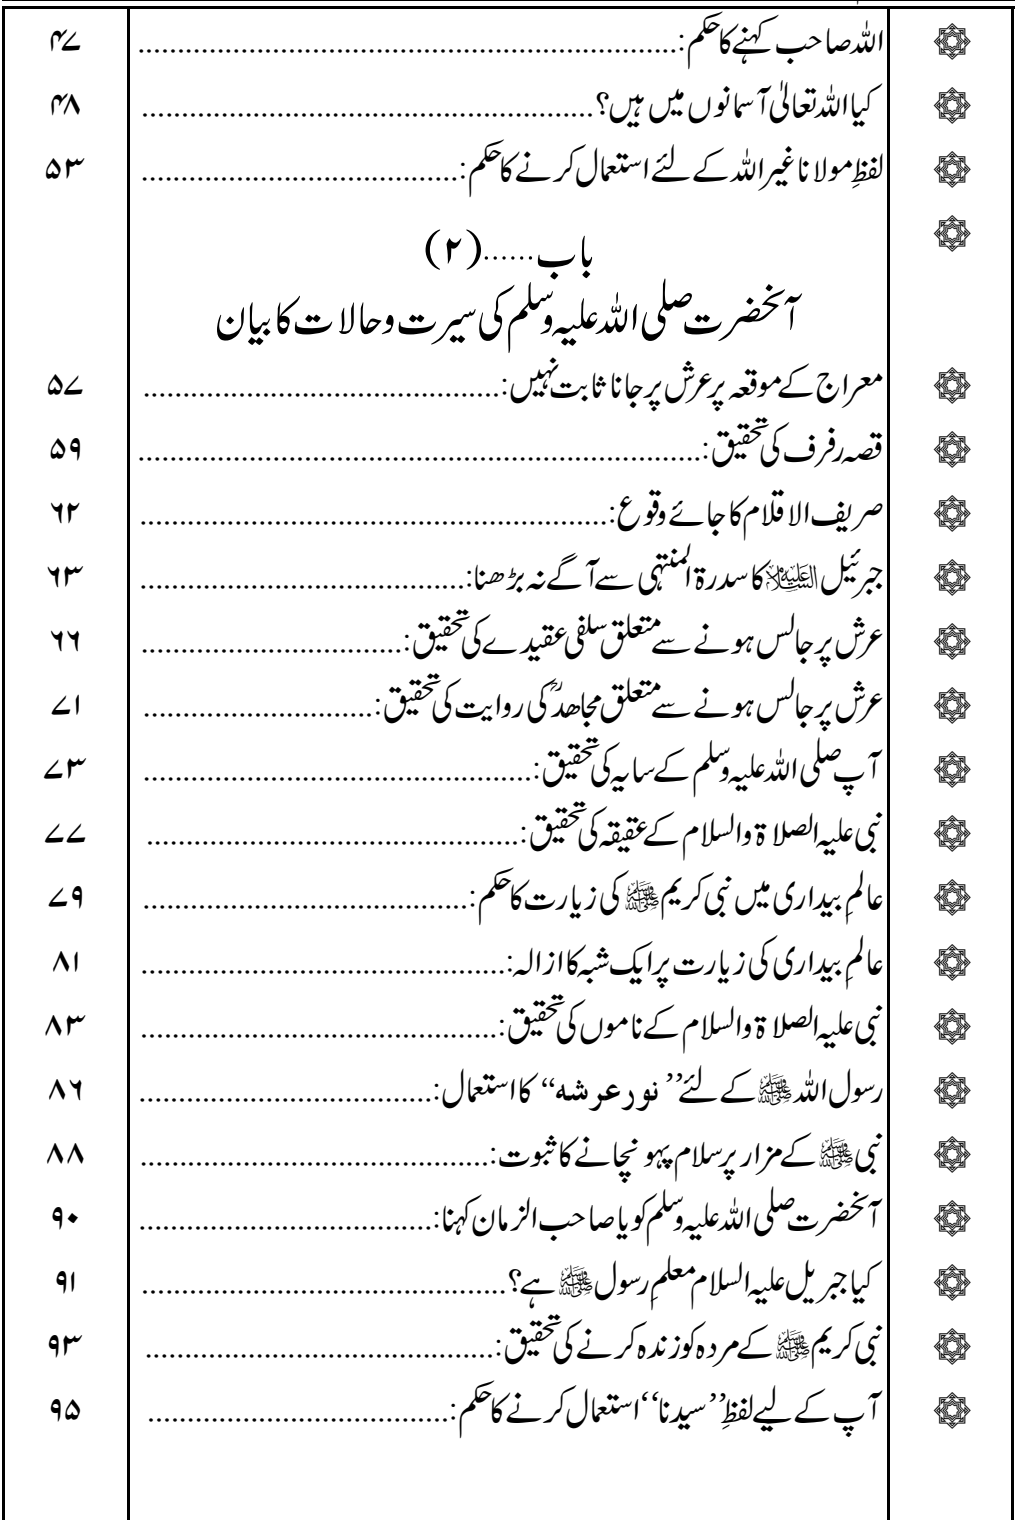 اللہ صاحب کہنے کا حکم: ۴۷
کیا اللہ تعالیٰ آسمانوں میں ہیں؟ ۴۸
لفظِ مولانا غیر اللہ کے لئے استعمال کرنے کا حکم: ۵۳
باب......(۲)
آنحضرت صلی اللہ علیہ وسلم کی سیرت وحالات کا بیان
معراج کے موقعہ پر عرش پر جانا ثابت نہیں: ۵۷
قصہ رفرف کی تحقیق: ۵۹
صریف الاقلام کا جائے وقوع: ۶۲
جبرئیل علیہ السلام کا سدرۃ المنتہی سے آگے نہ بڑھنا: ۶۳
عرش پر جالس ہونے سے متعلق سلفی عقیدے کی تحقیق: ۶۶
عرش پر جالس ہونے سے متعلق مجاھدؒ کی روایت کی تحقیق: ۷۱
آپ صلی اللہ علیہ وسلم کے سایہ کی تحقیق: ۷۳
نبی علیہ الصلاۃ والسلام کے عقیقہ کی تحقیق: ۷۷
عالمِ بیداری میں نبی کریم ﷺ کی زیارت کا حکم: ۷۹
عالمِ بیداری کی زیارت پر ایک شبہ کا ازالہ: ۸۱
نبی علیہ الصلاۃ والسلام کے ناموں کی تحقیق: ۸۳
رسول اللہ ﷺ کے لئے ’’نور عرشه‘‘ کا استعمال: ۸۶
نبی ﷺ کے مزار پر سلام پہونچانے کا ثبوت: ۸۸
آنحضرت صلی اللہ علیہ وسلم کو یا صاحب الزمان کہنا: ۹۰
کیا جبریل علیہ السلام معلمِ رسول ﷺ ہے؟ ۹۱
نبی کریم ﷺ کے مردہ کو زندہ کرنے کی تحقیق: ۹۳
آپ کے لیے لفظِ ’’سیدنا‘‘ استعمال کرنے کا حکم: ۹۵